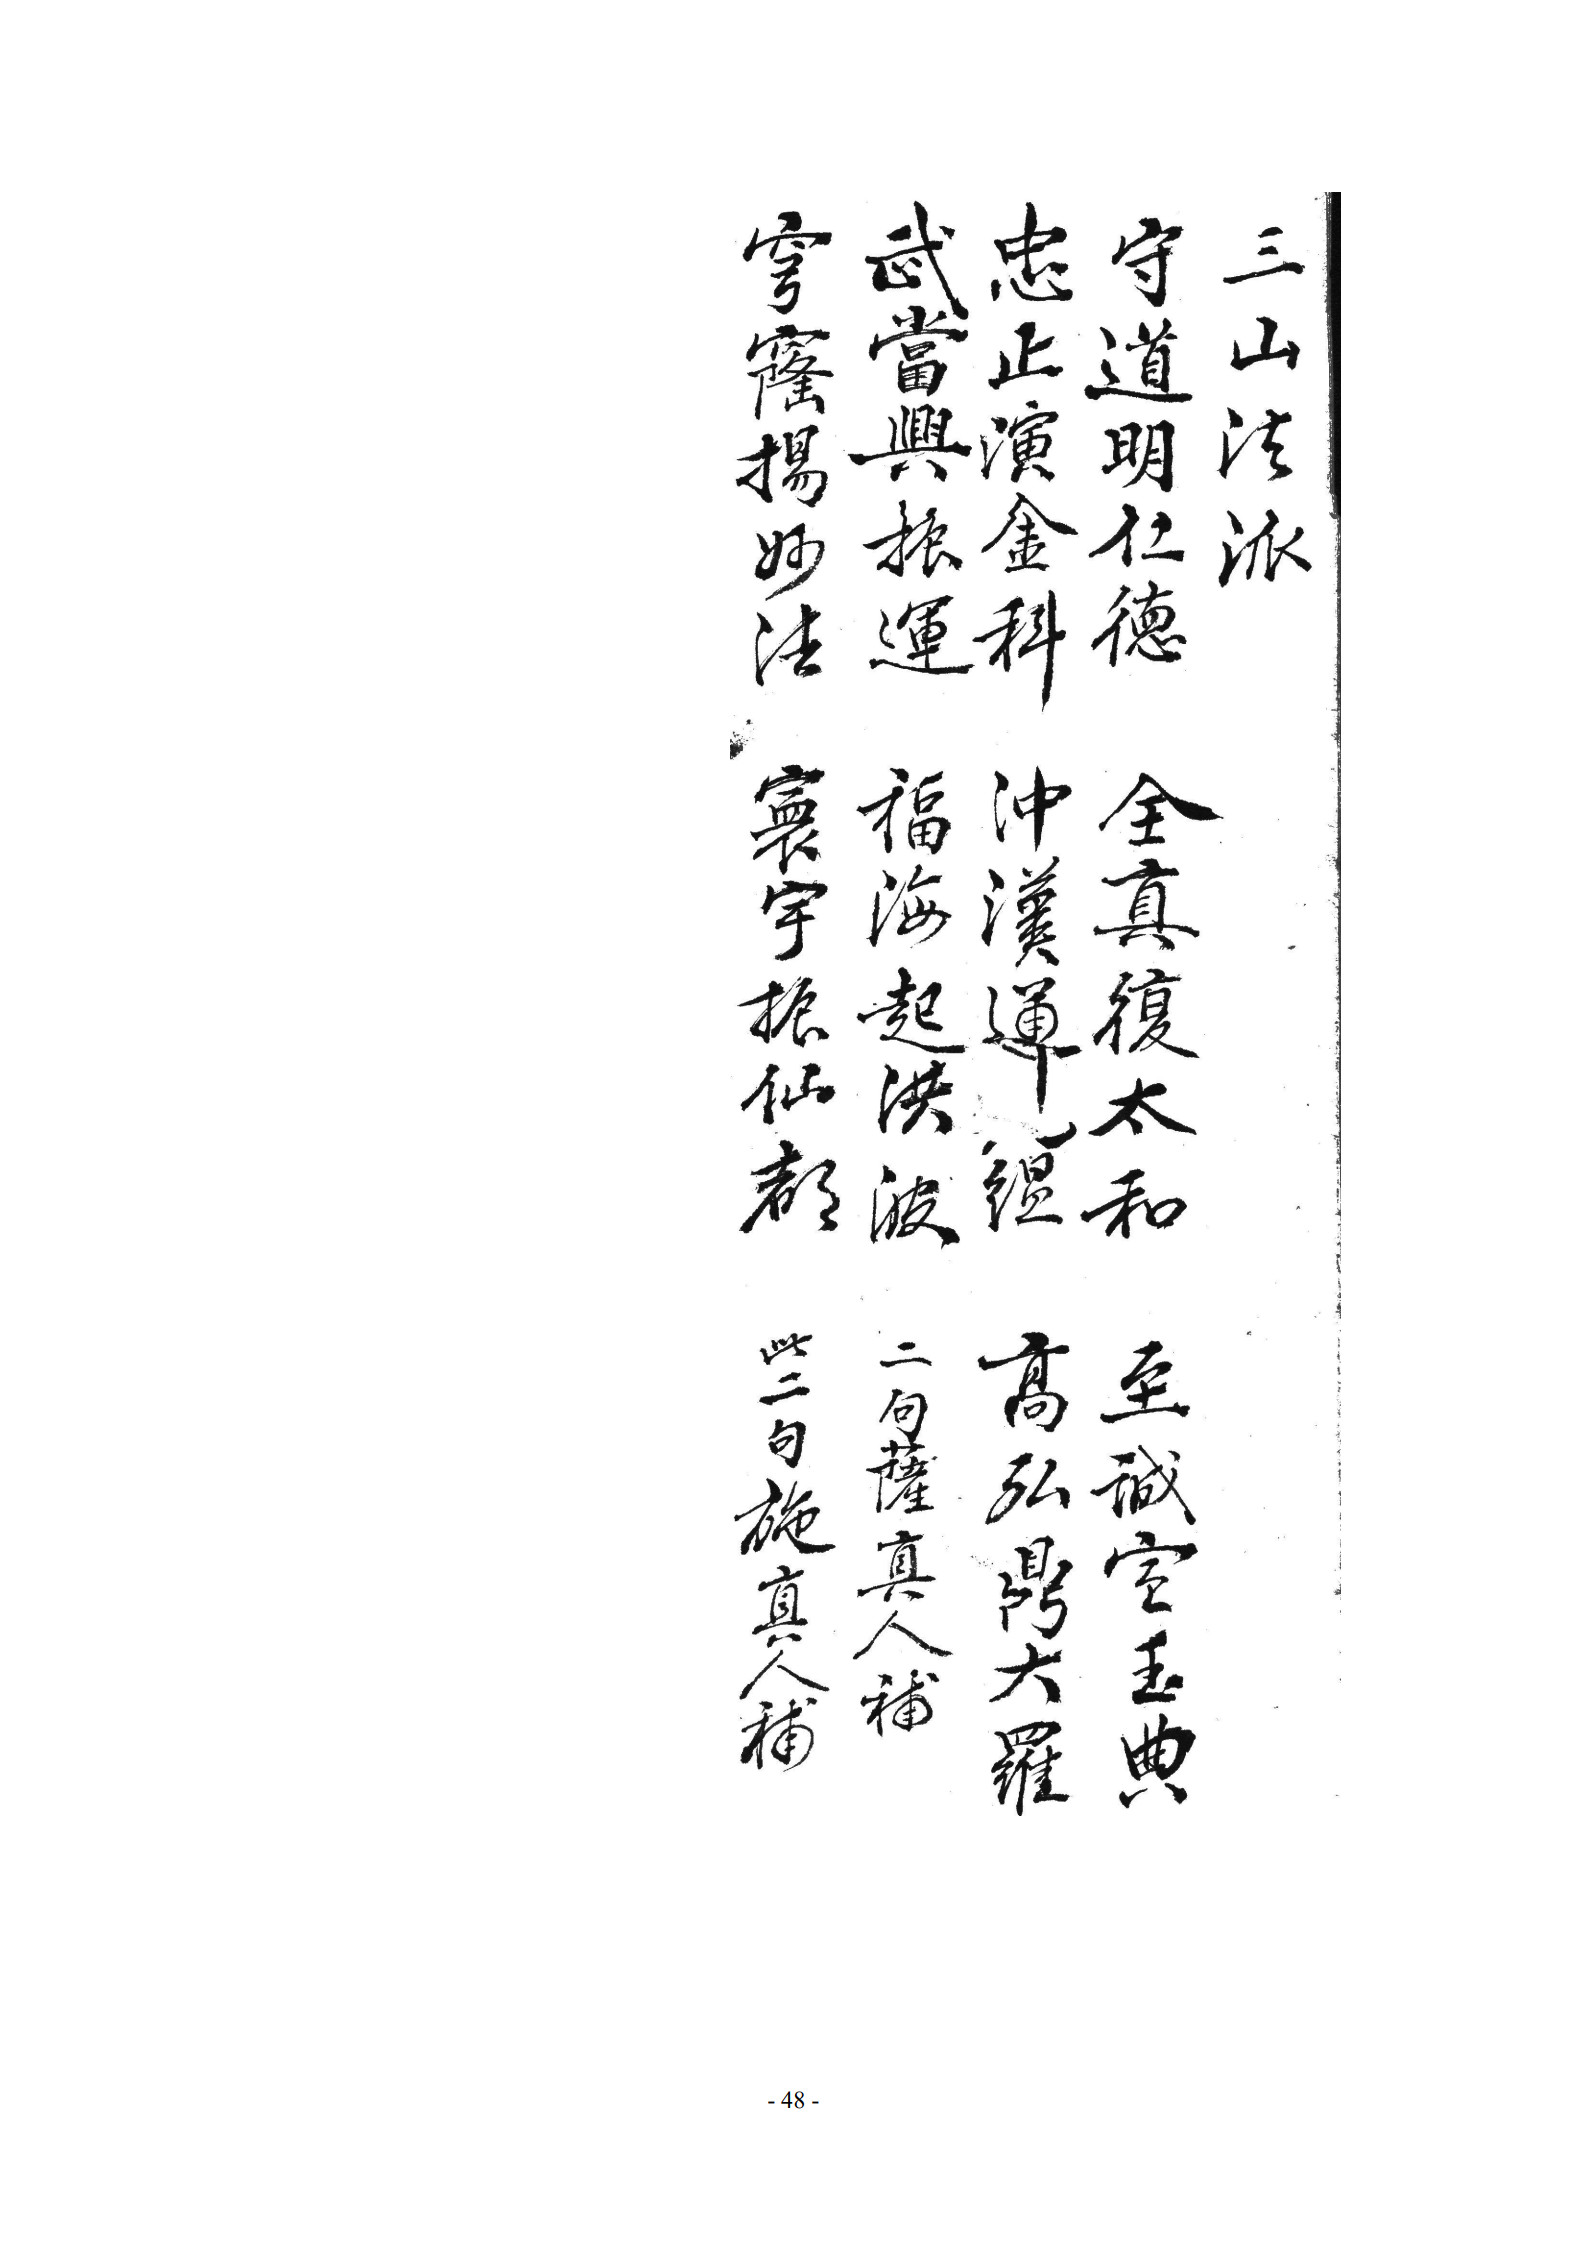 三山法派
守道明仁德　全真復太和　至誠宣玉典
忠正演金科　沖漢運　縕　高弘鼎大羅
武當興振運　福海起洪波　二句薩真人補
穹窿揚妙法　寰宇振仙都　此二句施真人補
- 48 -